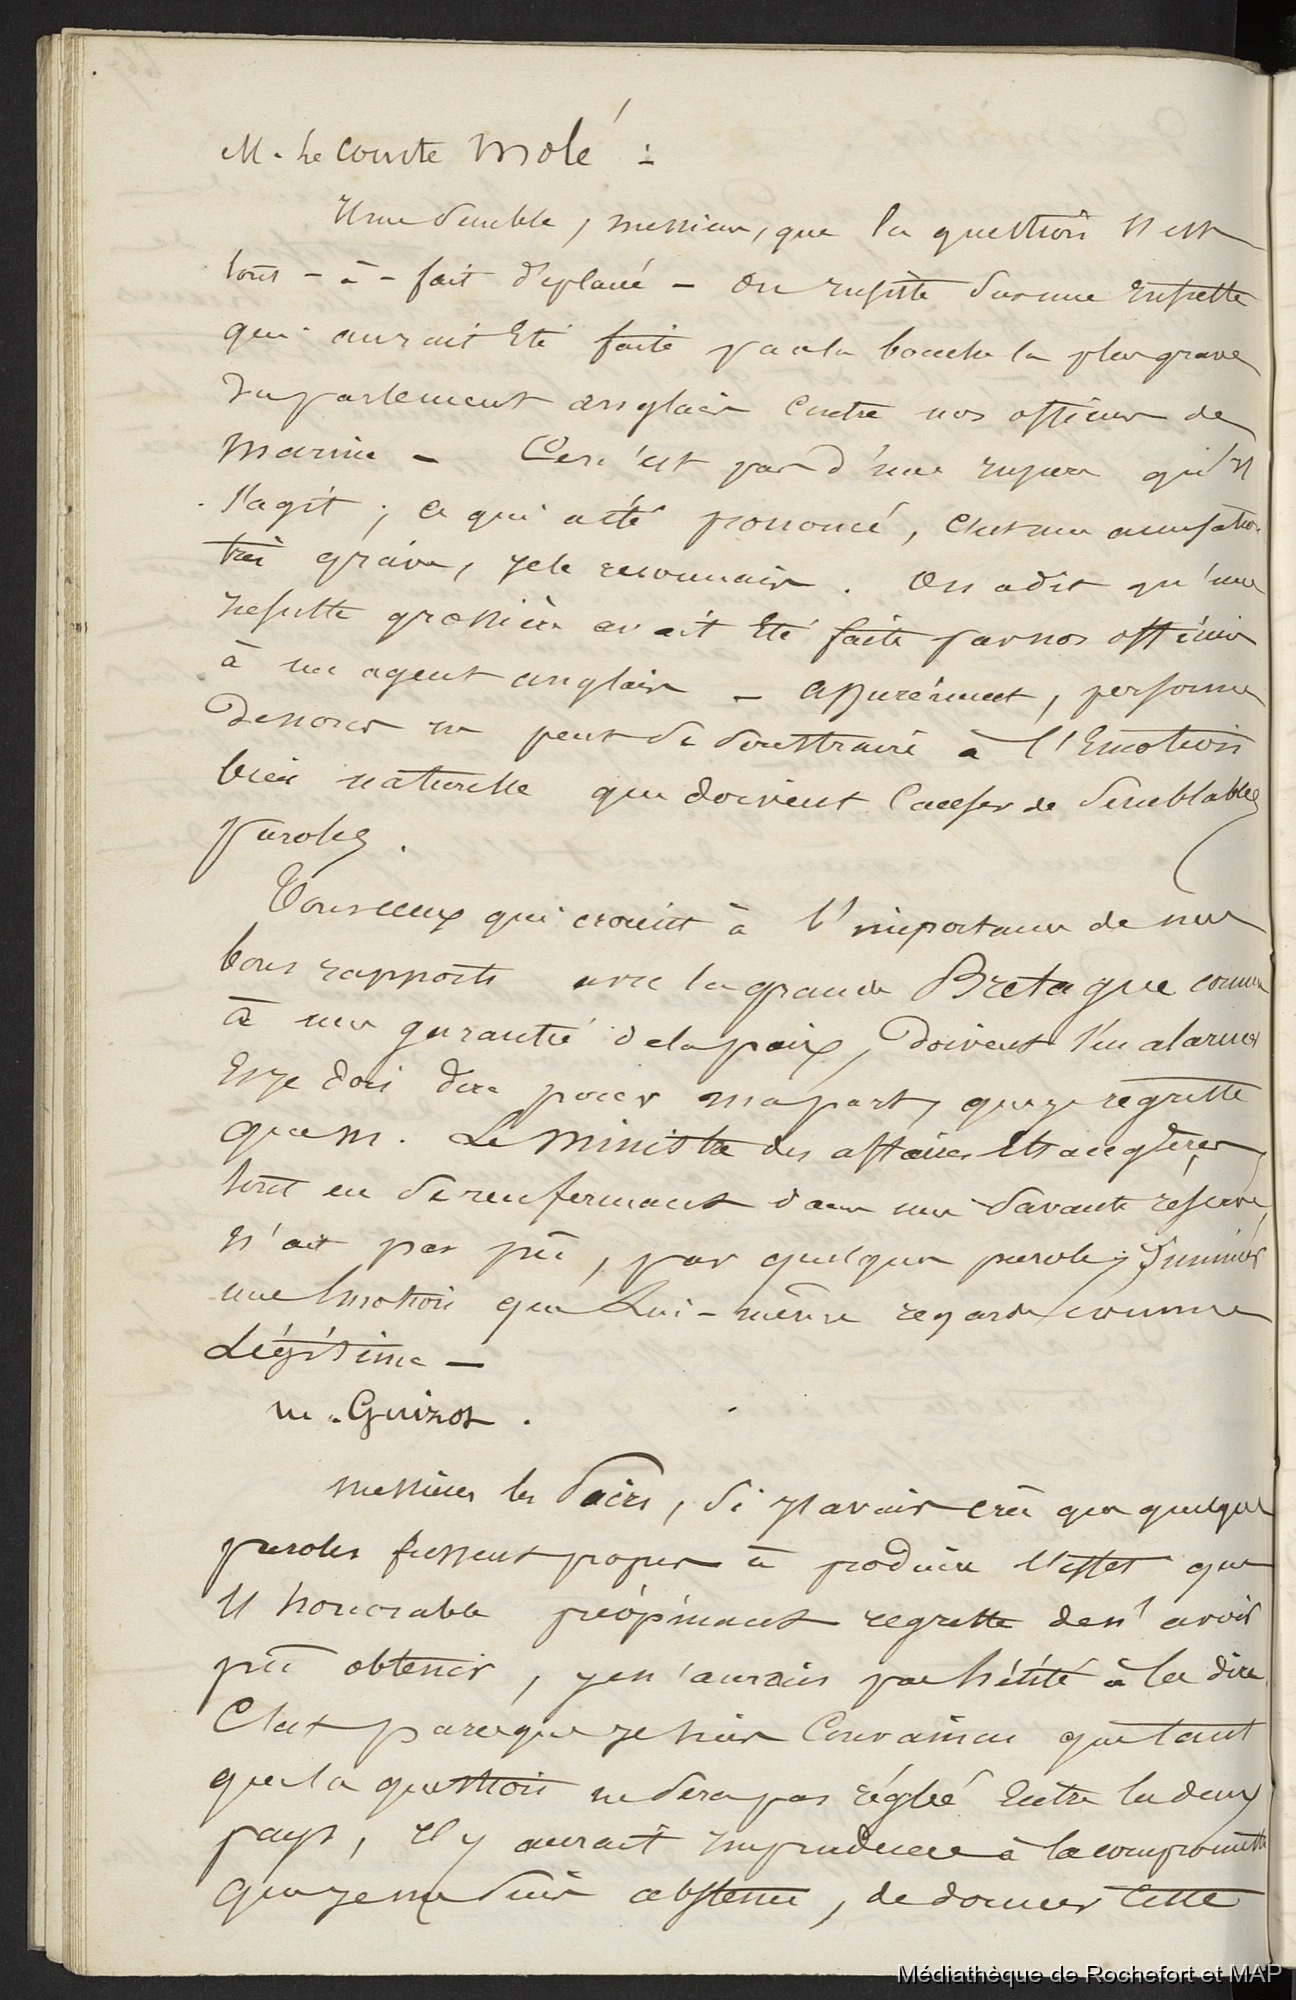 M. Le comte Molé :
Il me semble, messieurs, que la question s'est
tout-à-fait déplacé - On insiste sur une insulte
qui aurait été faite par la bouche la plus grave
du parlement anglais contre nos officiers de
marine - Ce n'est pas d'une injure qu'il
s'agit ; ce qui a été prononcé, c'est une accusation
très grave, je le reconnais. On a dit qu'une
insulte grossière avait été faite par nos officiers
à un agent anglais - assurément, personne
de nous ne peut se soustraire à l'émotion
bien naturelle que doivent causer de semblables
paroles.
Tous ceux qui croient à l'importance de nos
bons rapports avec la grande Bretagne comme
à une garantie de la paix, doivent s'en alarmer
Et je dois dire pour ma part, que je regrette
que M. Le Ministre des affaires Etrangères,
tout en se renfermant dans une savante réserve,
n'ait pas pu, par quelques paroles,
une émotion que Lui-même regarde comme
Légitime -
M. Guizot.
Messieurs les Pairs, si j'avais crû que quelques
paroles fussent propres à produire l'effet que
l'honorable préopinant regrette de n'avoir
pû obtenir, je n'aurais pas hésité à les dire
C'est parceque je suis convaincu que tant
que la question ne sera pas réglé entre les deux
pays, il y aurait imprudence à la compromettre
que je me suis abstenu, de donner cette
Médiathèque de Rochefort et MAP